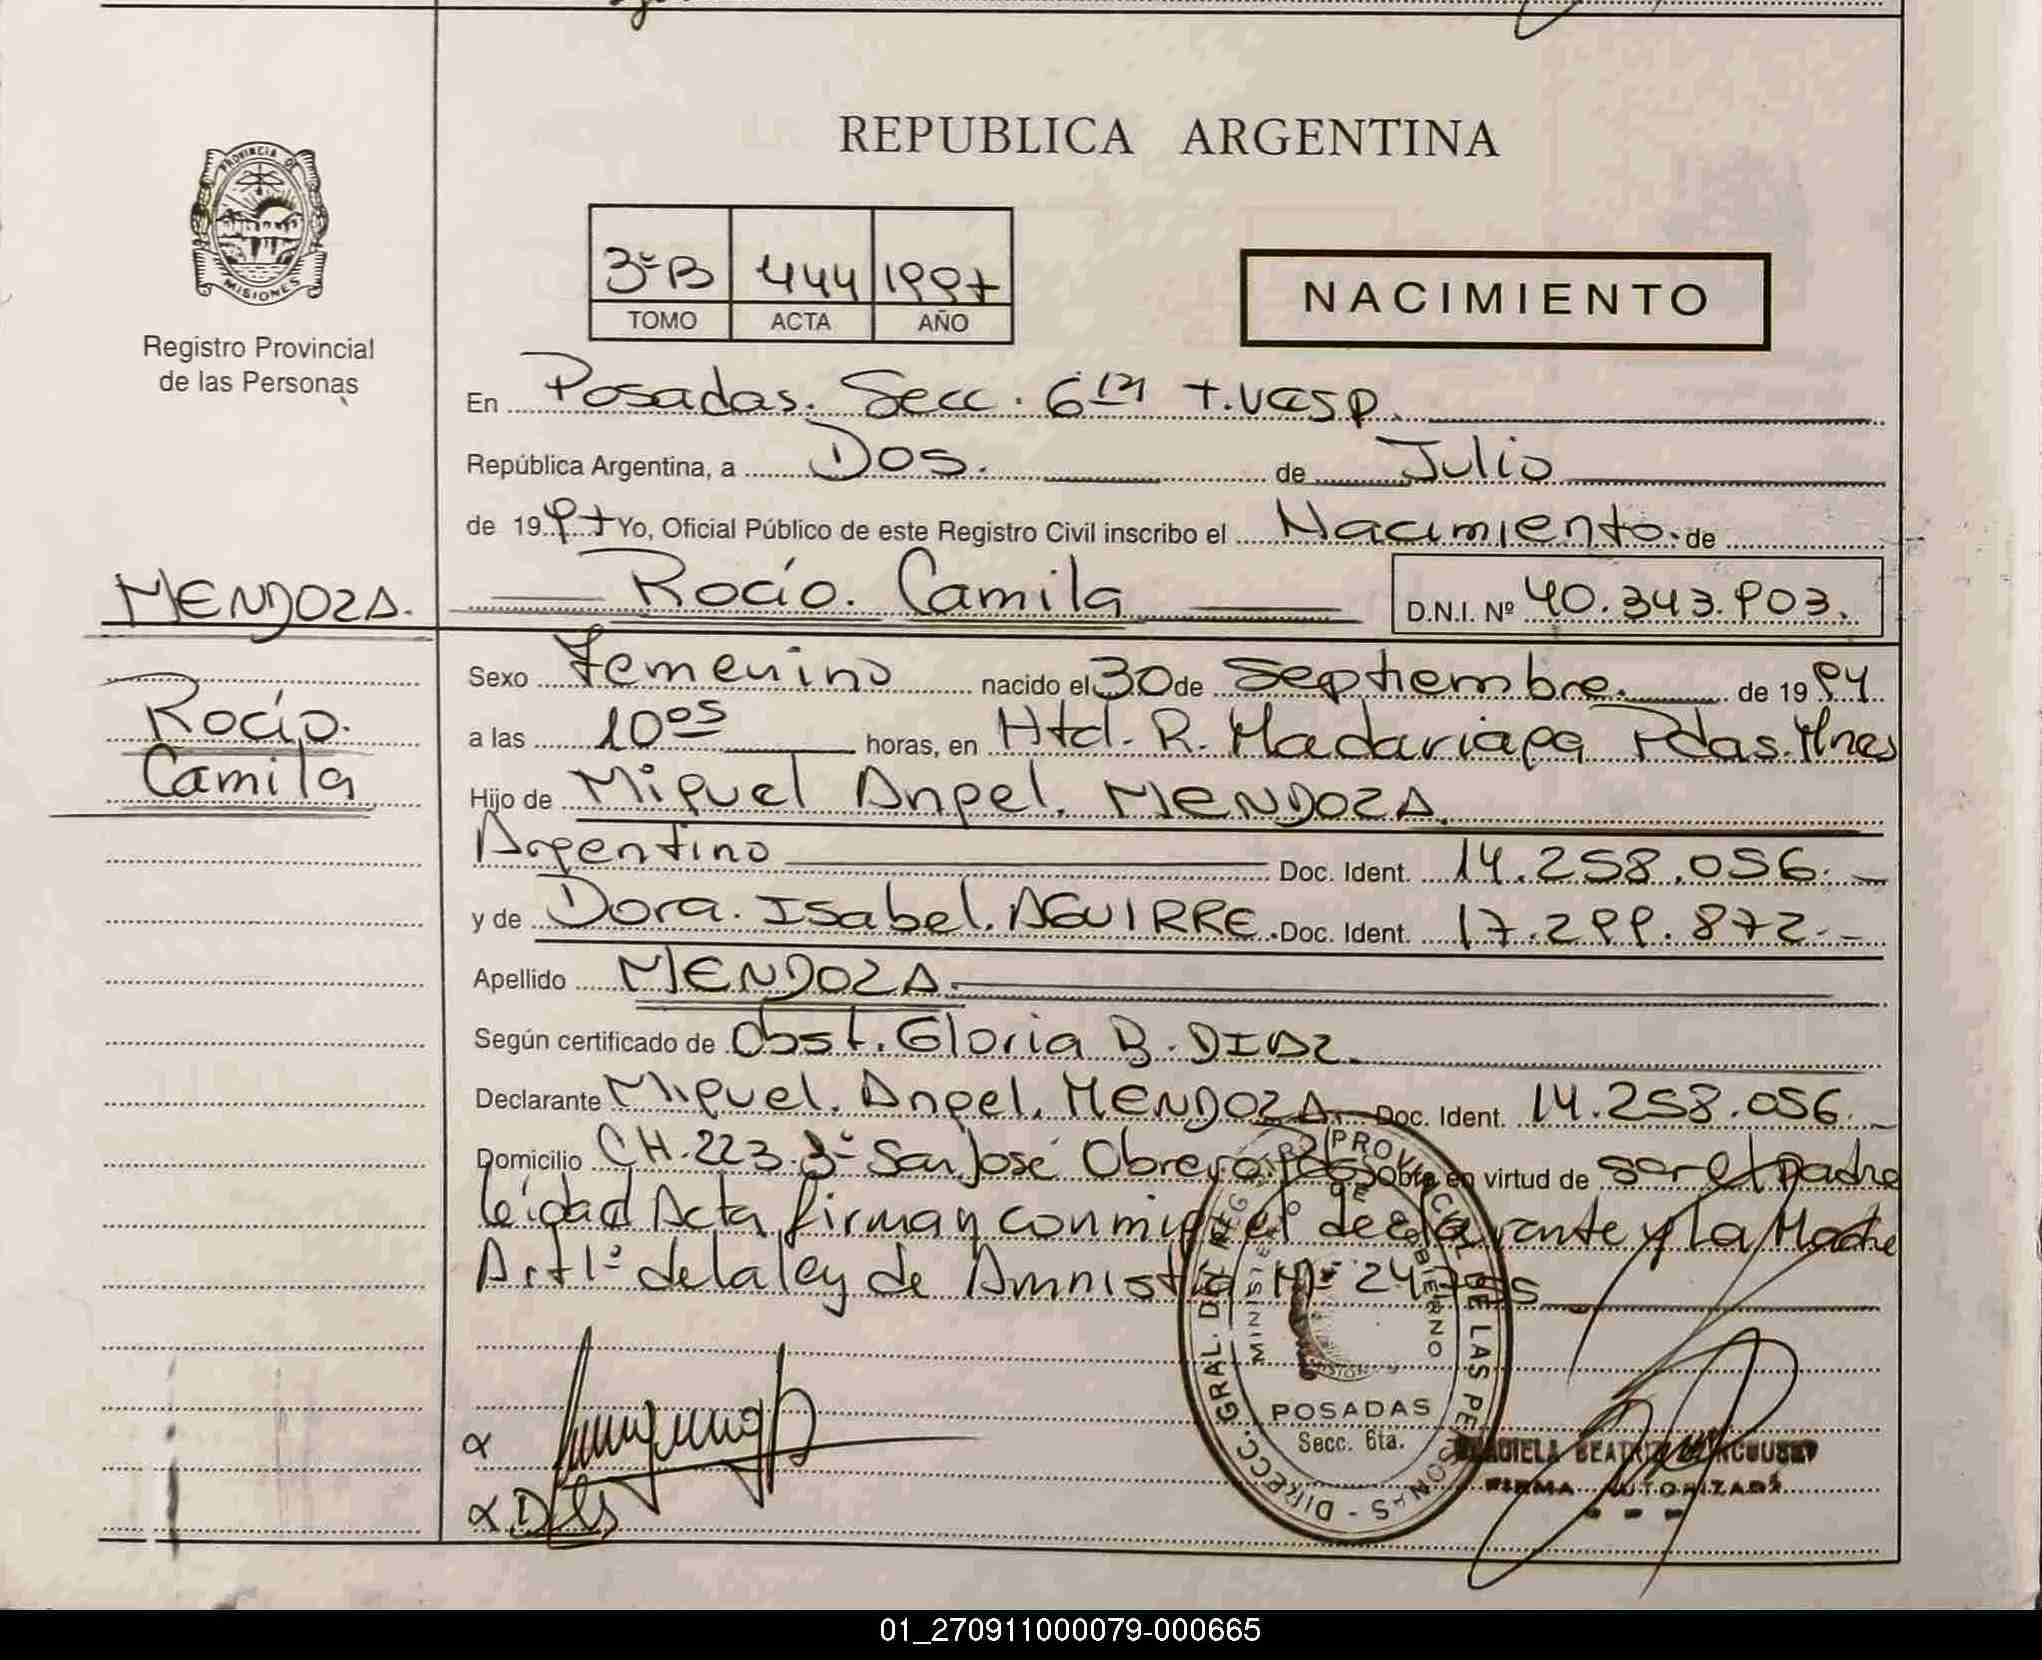 REPUBLICA ARGENTINA
PROVINCIA DE
MISIONES
Registro Provincial
de las Personas
3º B 444 1997
TOMO ACTA AÑO
NACIMIENTO
En Posadas. Secc. 6ta T. Vesp.
República Argentina, a Dos. de Julio
de 1997 Yo, Oficial Público de este Registro Civil inscribo el Nacimiento. de
MENDOZA. Rocío. Camila D.N.I. Nº 40.343.903.
Sexo Femenino nacido el 30 de Septiembre. de 1994
Rocío.
a las 10 05 horas, en Htal. R. Madariaga Pdas. Mnes
Camila
Hijo de Miguel Angel. MENDOZA.
Argentino Doc. Ident. 14.258.056.
y de Dora. Isabel. AGUIRRE. Doc. Ident. 17.299.872.
Apellido MENDOZA.
Según certificado de Obst. Gloria B. DIAZ.
Declarante Miguel. Angel. MENDOZA. Doc. Ident. 14.258.056.
Domicilio CH. 223. 3º San José Obrero. Pdas Obra en virtud de ser el padre
leída el Acta firman conmigo el declarante y La Madre
Art 1º de la ley de Amnistia Nº 24.755
DIRECC. GRAL. DEL REGISTRO PROVINCIAL DE LAS PERSONAS
MINISTERIO DE GOBIERNO
POSADAS
Secc. 6ta.
BEATRIZ
FIRMA AUTORIZADA
01_270911000079-000665